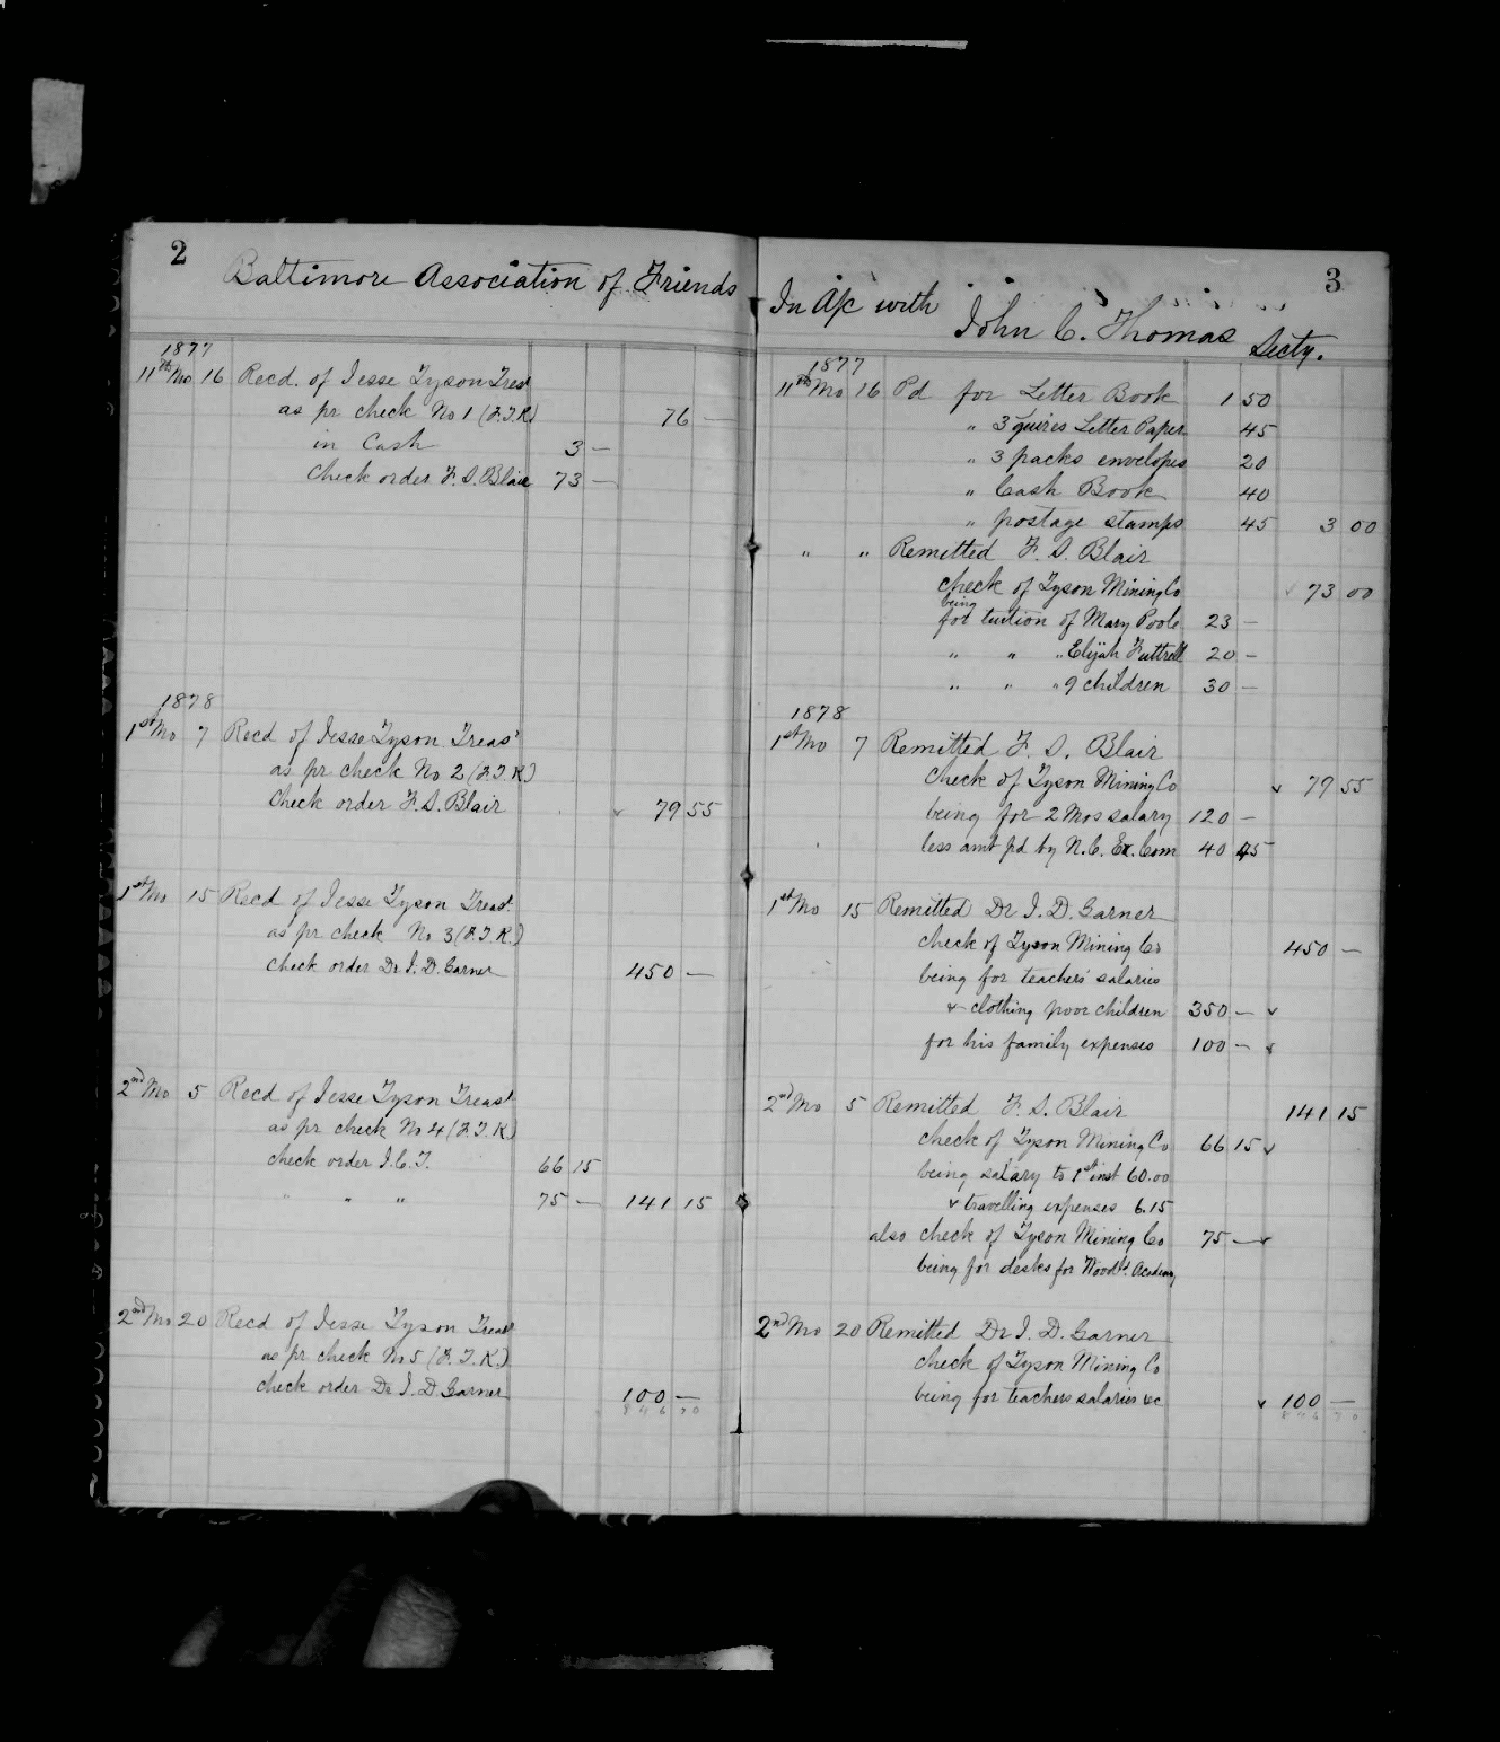 2
Baltimore Association of Friends
1877
11th Mo 16 Recd. of Jesse Tyson Treast
as pr check No 1 (F.T.K) 76 —
in Cash 3 —
Check order F. S. Blair 73 —
1878
1st Mo 7 Recd of Jesse Tyson Treast
as pr check No 2 (F.T.K)
Check order F.S. Blair 79 55
1st Mo 15 Recd of Jesse Tyson Treast
as pr check No 3 (F.T.K.)
Check order Dr I. D. Garner 450 —
2nd Mo 5 Recd of Jesse Tyson Treast
as pr check No 4 (F.T.K)
check order J.C.T. 66 15
" " " 75 — 141 15
2nd Mo 20 Recd of Jesse Tyson Treast
as pr check No 5 (F.T.K.)
check order Dr I. D Garner 100 —
846 70
3
In A/c with John C. Thomas Secty.
1877
11th Mo 16 Pd for Letter Book 1 50
" 3 quires Letter Paper 45
" 3 packs envelopes 20
" Cash Book 40
" postage stamps 45 3 00
" " Remitted F. S. Blair
check of Tyson Mining Co 73 00
being
for tuition of Mary Poole 23 —
" " " Elijah Futtrell 20 —
" " " 9 children 30 —
1878
1st Mo 7 Remitted F. S. Blair
Check of Tyson Mining Co 79 55
being for 2 Mos salary 120 —
less amt pd by N.C. Ex. Com 40 45
1st Mo 15 Remitted Dr I. D. Garner
Check of Tyson Mining Co 450 —
being for teachers' salaries
& clothing poor children 350 —
for his family expenses 100 —
2nd Mo 5 Remitted F. S. Blair 141 15
Check of Tyson Mining Co 66 15
being salary to 1st inst 60.00
& travelling expenses 6.15
also check of Tyson Mining Co 75 —
being for desks for Woodld. Academy
2nd Mo 20 Remitted Dr I. D. Garner
check of Tyson Mining Co
being for teachers salaries &c 100 —
846 70